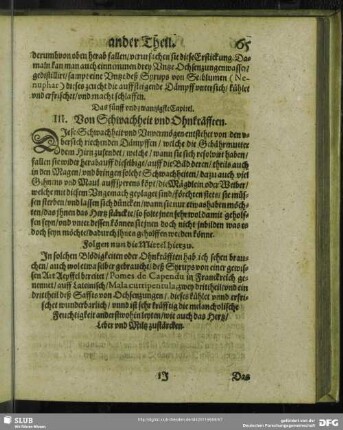 ander Theil. 65
derumb von oben herab fallen / verursachen sie diese Erstickung. Das
mal kan man auch einnemmen drey Untz Ochsenzungenwasser /
gedistillirt / sampt eine Untze deß Syrups von Seeblumen (Ne-
nuphar) dieses zeucht die auffsteigende Dämpff unter sich / kühlet
und erfrischet / und macht schlaffen.
Das fünff und zwantzigste Capitel.
III. Von Schwachheit und Ohnkräfften.
Diese Schwachheit und Unvermögen entstehet von den u-
bersich riechenden Dämpffen / welche die Gebährmutter
dem Hirn zusendet / welche / wann sie sich resolvirt haben /
fallen sie wider herab auff dieselbige / auff die
in den Magen / und bringen solche Schwachheiten / daß auch viel
und Maul auffsperens die Mägdlein oder Weiber /
welche mit diesem Ungemach geplaget sind / förchten stets sie müs-
sen sterben / und lassen sich düncken / wann sie nur etwas haben möch-
ten / das ihnen das Hertz stärckte / so solte ihnen sehr wol damit geholf-
fen seyn / und unter dessen können sie ihnen doch nicht inbilden was es
doch seyn möchte / dadurch ihnen geholffen werden könne.
Folgen nun die Mittel hierzu.
In solchen Blödigkeiten oder Ohnkräfften hab ich sehen brau-
chen / auch wol etwa selber gebraucht / deß Syrups von einer gewis-
sen Art Aepffel bereitet / Pomes de Capendu in Franckreich ge-
nennet / auff Lateinisch / Mala curtipendula, zwey drittheil / und ein
drittheil deß Saffts von Ochsenzungen / dieses kühlet und erfri-
schet wunderbarlich / und ist sehr kräfftig die melancholische
Feuchtigkeit anderstwohin leyten / wie auch das Hertz /
Leber und Miltz zustärcken.
Das
SLUB
Wir führen Wissen.
http://digital.slub-dresden.de/
gefördert von der
Deutschen Forschungsgemeinschaft
DFG